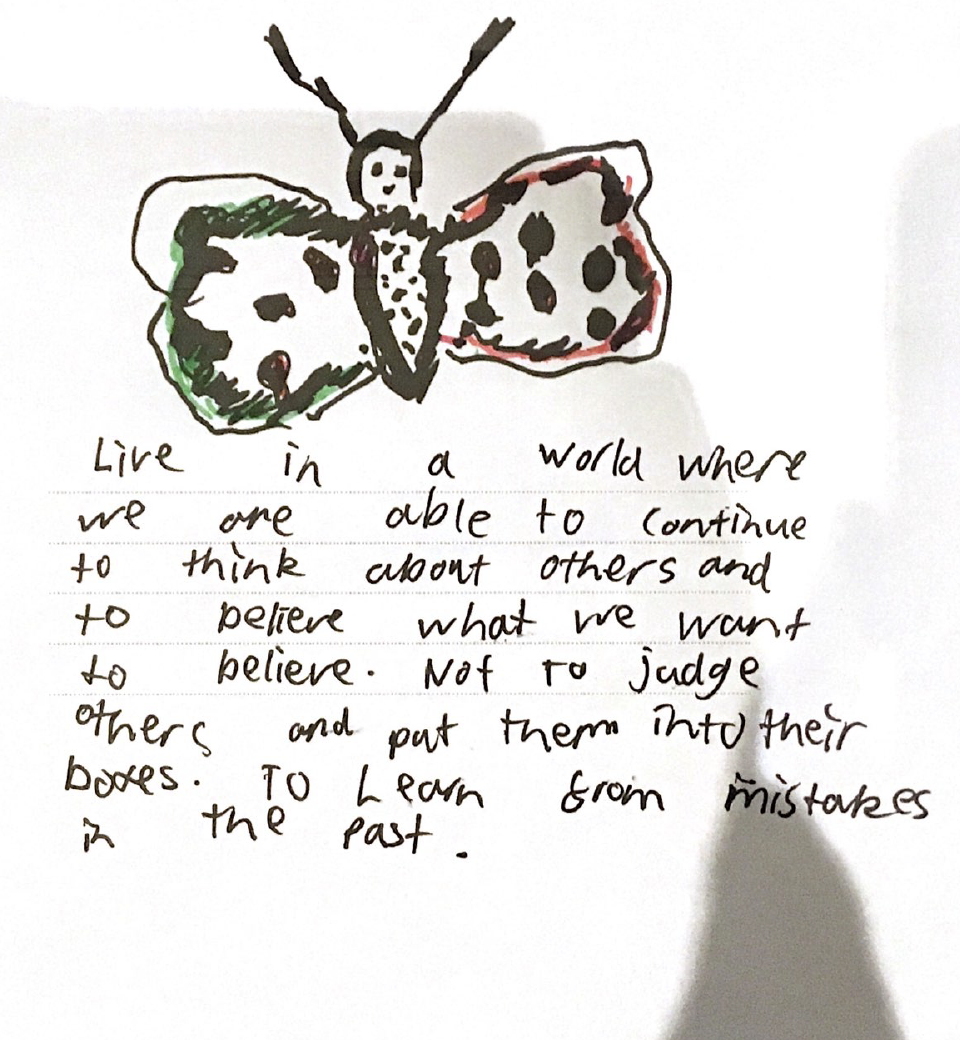 Live in a world where
we are able to continue
to think about others and
to believe what we want
to believe. Not to judge
others and put them into their
boxes. To Learn from mistakes
in the past.